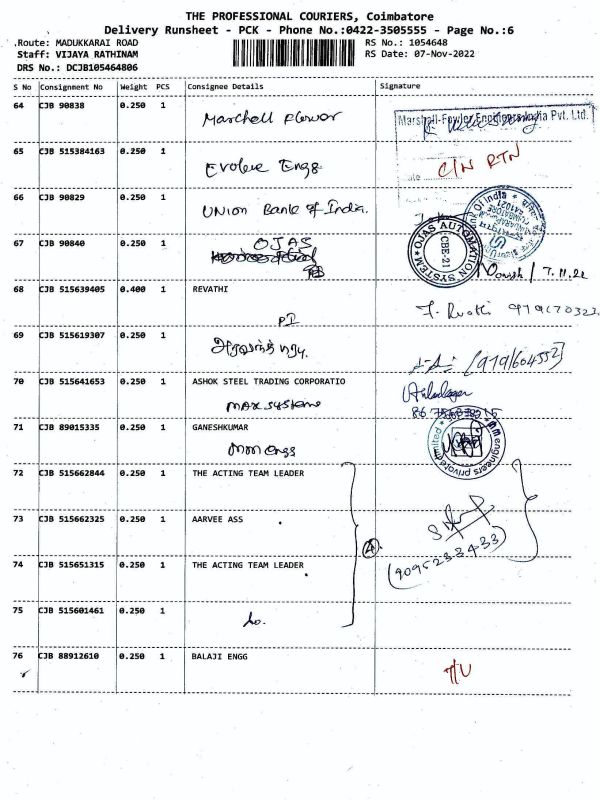 THE PROFESSIONAL COURIERS, Coimbatore
Delivery Runsheet - PCK - Phone No.:0422-3505555 - Page No.:6
Route: MADUKKARAI ROAD RS No.: 1054648
Staff: VIJAYA RATHINAM RS Date: 07-Nov-2022
DRS No.: DCJB105464806
S No Consignment No Weight PCS Consignee Details Signature
64 CJB 90838 0.250 1 Marchell flower
Marshall-Fowler Engineers India Pvt. Ltd.
65 CJB 515384163 0.250 1 Evolve Engg C/N RTN
66 CJB 90829 0.250 1 Union Bank of India.
67 CJB 90840 0.250 1 OJAS
OJAS AUTOMATION SYSTEM
CBE-21
7.11.22
68 CJB 515639405 0.400 1 REVATHI
PI
69 CJB 515619307 0.250 1
70 CJB 515641653 0.250 1 ASHOK STEEL TRADING CORPORATIO
max systems
71 CJB 89015335 0.250 1 GANESHKUMAR
mm engg
engineers private limited
72 CJB 515662844 0.250 1 THE ACTING TEAM LEADER
73 CJB 515662325 0.250 1 AARVEE ASS
4
(9095233433)
74 CJB 515651315 0.250 1 THE ACTING TEAM LEADER
75 CJB 515601461 0.250 1 do.
76 CJB 88912610 0.250 1 BALAJI ENGG T/U